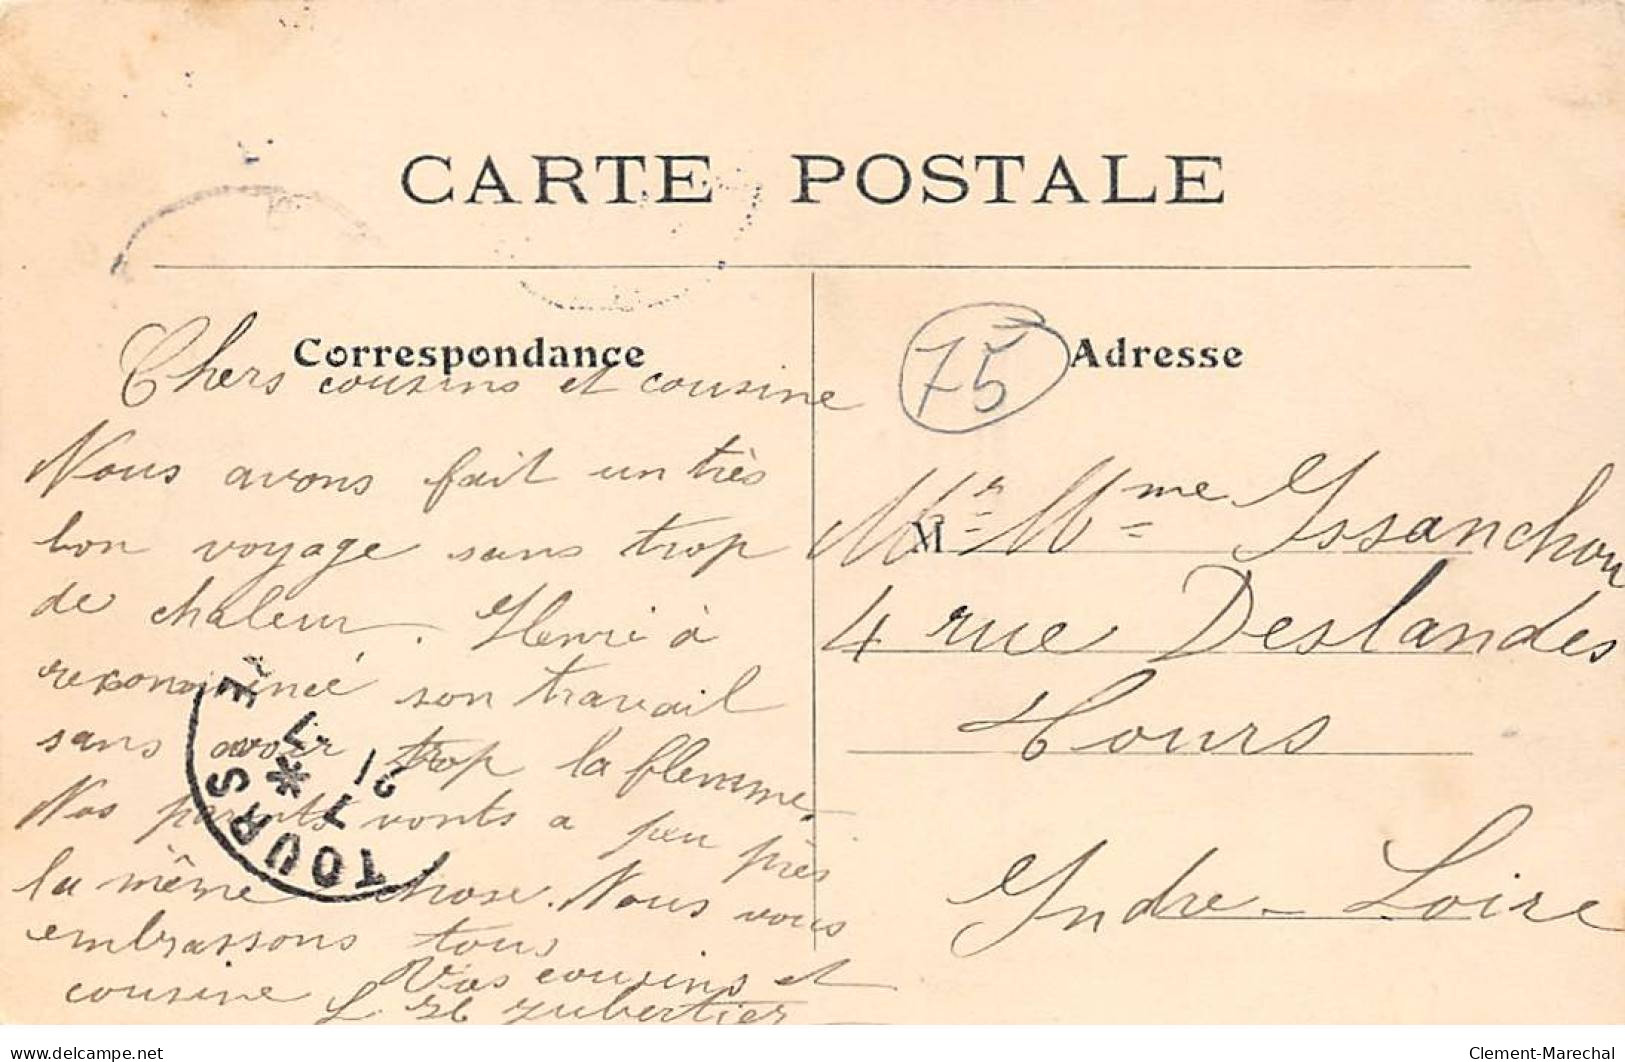 CARTE POSTALE
Correspondance
Chers cousins et cousine
Nous avons fait un très
bon voyage sans trop
de chaleur. Henri à
recommencé son travail
sans avoir trop la flemme.
Nos parents vonts a peu près
la même chose. Nous vous
embrassons tous
Vos cousins et
cousine
L H
TOURS
21
7
75
Adresse
M
Mr Mme Issanchou
4 rue Deslandes
Tours
Indre-Loire
delcampe.net
Clement-Marechal